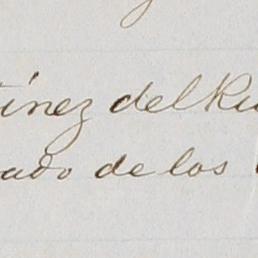 tínez del Ru
ado de los